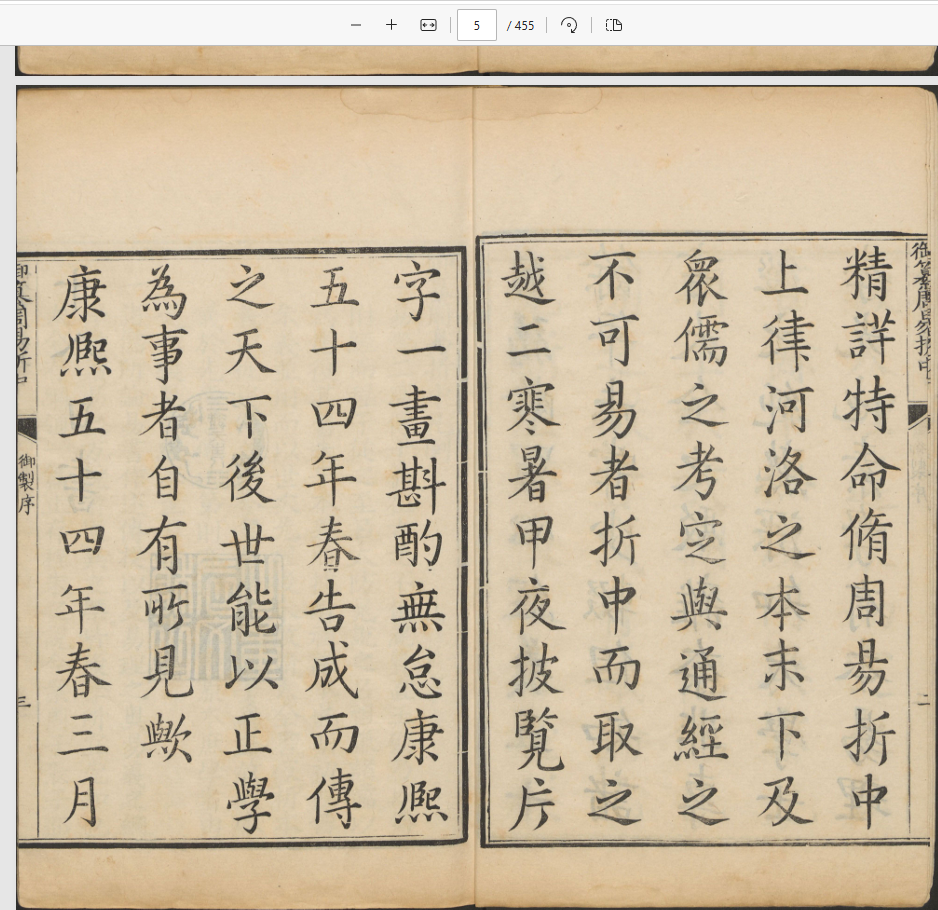 5 / 455
精詳特命脩周易折中
上律河洛之本末下及
衆儒之考定與通經之
不可易者折中而取之
越二寒暑甲夜披覽片
字一畫斟酌無怠康熙
五十四年春告成而傳
之天下後世能以正學
為事者自有所見歟
康熙五十四年春三月
御製序
三